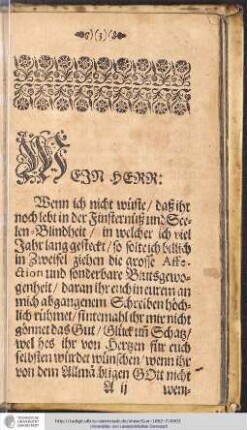 (3)
MEIN HERR:
Wenn ich nicht wüste / daß ihr
noch lebt in der Finsternüß und See-
len-Blindheit / in welcher ich viel
Jahr lang gesteckt / so solte ich billich
in Zweifel ziehen die grosse Affe-
ction und sonderbare Blutsgewo-
genheit / daran ihr euch in eurem an
mich abgangenem Schreiben höch-
lich rühmet / sintemahl ihr mir nicht
gönnet das Gut / Glück uñ Schatz /
welches ihr von Hertzen für euch
selbsten würdet wünschen / wenn ihr
von dem Allmächtigen GOtt nicht
A ij wem-